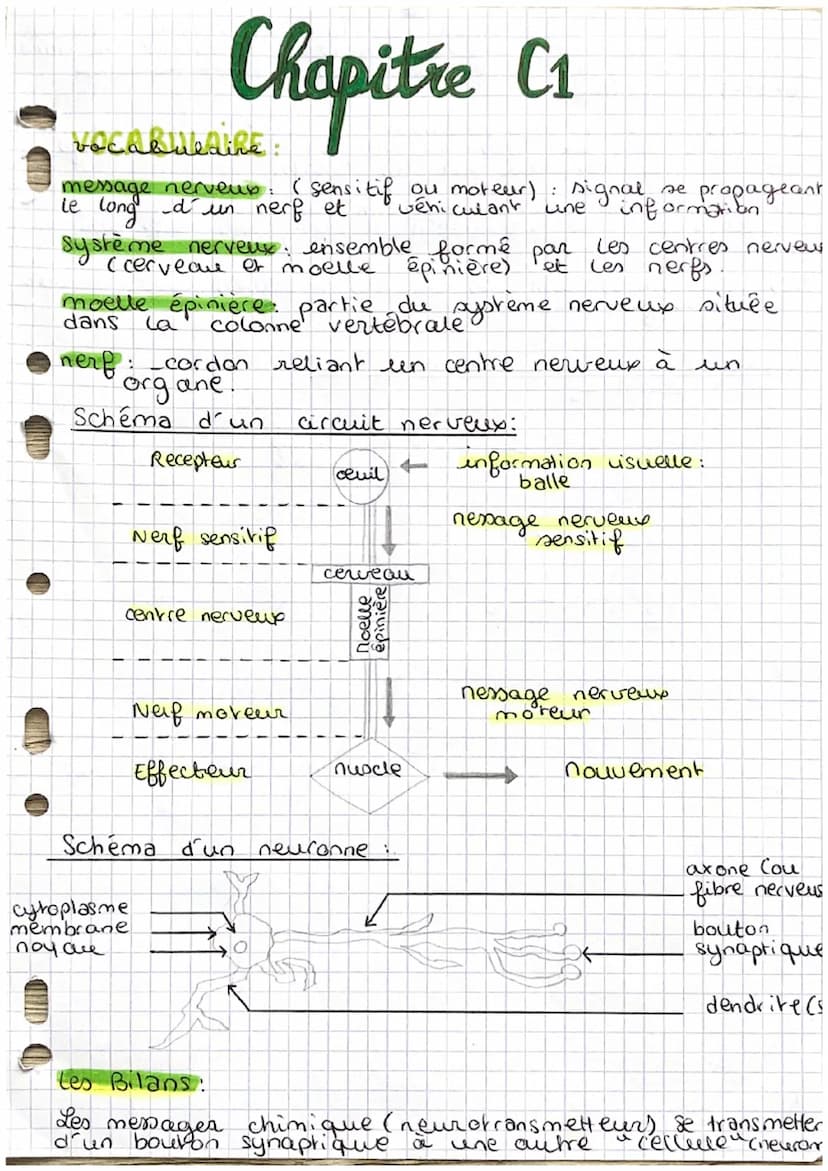 Chapitre C1
VOCABULAIRE :
vocabulaire
message nerveux : (sensitif ou moteur) : signal se propageant
le long d'un nerf et véhiculant une information
système nerveux : ensemble formé par les centres nerveu
(cerveau et moelle épinière) et les nerfs.
moelle épinière : partie du système nerveux située
dans la colonne vertébrale
nerf : cordon reliant un centre nerveux à un
organe.
Schéma d'un circuit nerveux :
Recepteur
oeuil
information visuelle :
balle
Nerf sensitif
message nerveux
sensitif
cerveau
centre nerveux
Moelle
épinière
Nerf moteur
message nerveux
moteur
Effecteur
muscle
Mouvement
Schéma d'un neuronne :
axone (ou
fibre nerveus
cytoplasme
membrane
noyau
bouton
synaptique
dendrite(s
Les Bilans :
Les messager chimique (neurotransmetteur) se transmetter
d'un bouton synaptique à une autre "cellule" (neuron